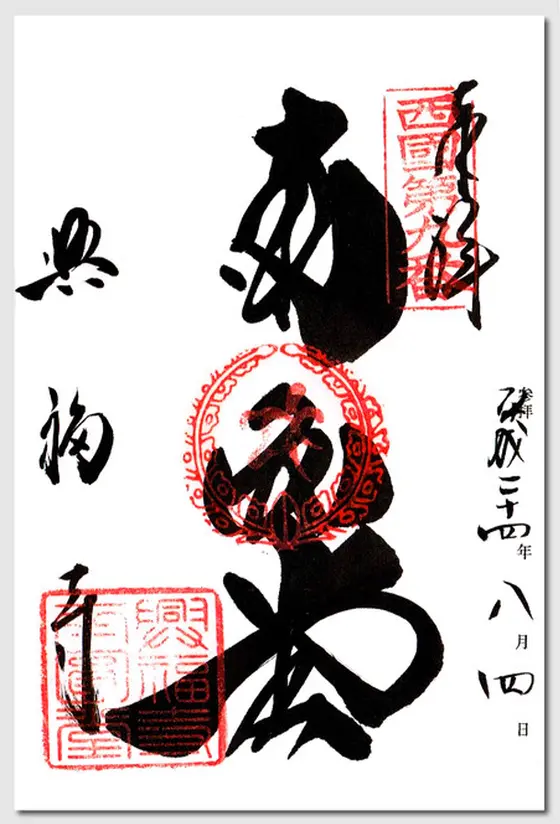 奉拝
西國第九番
参拝
平成二十四年八月四日
南円堂
興福寺
興福寺
南圓堂